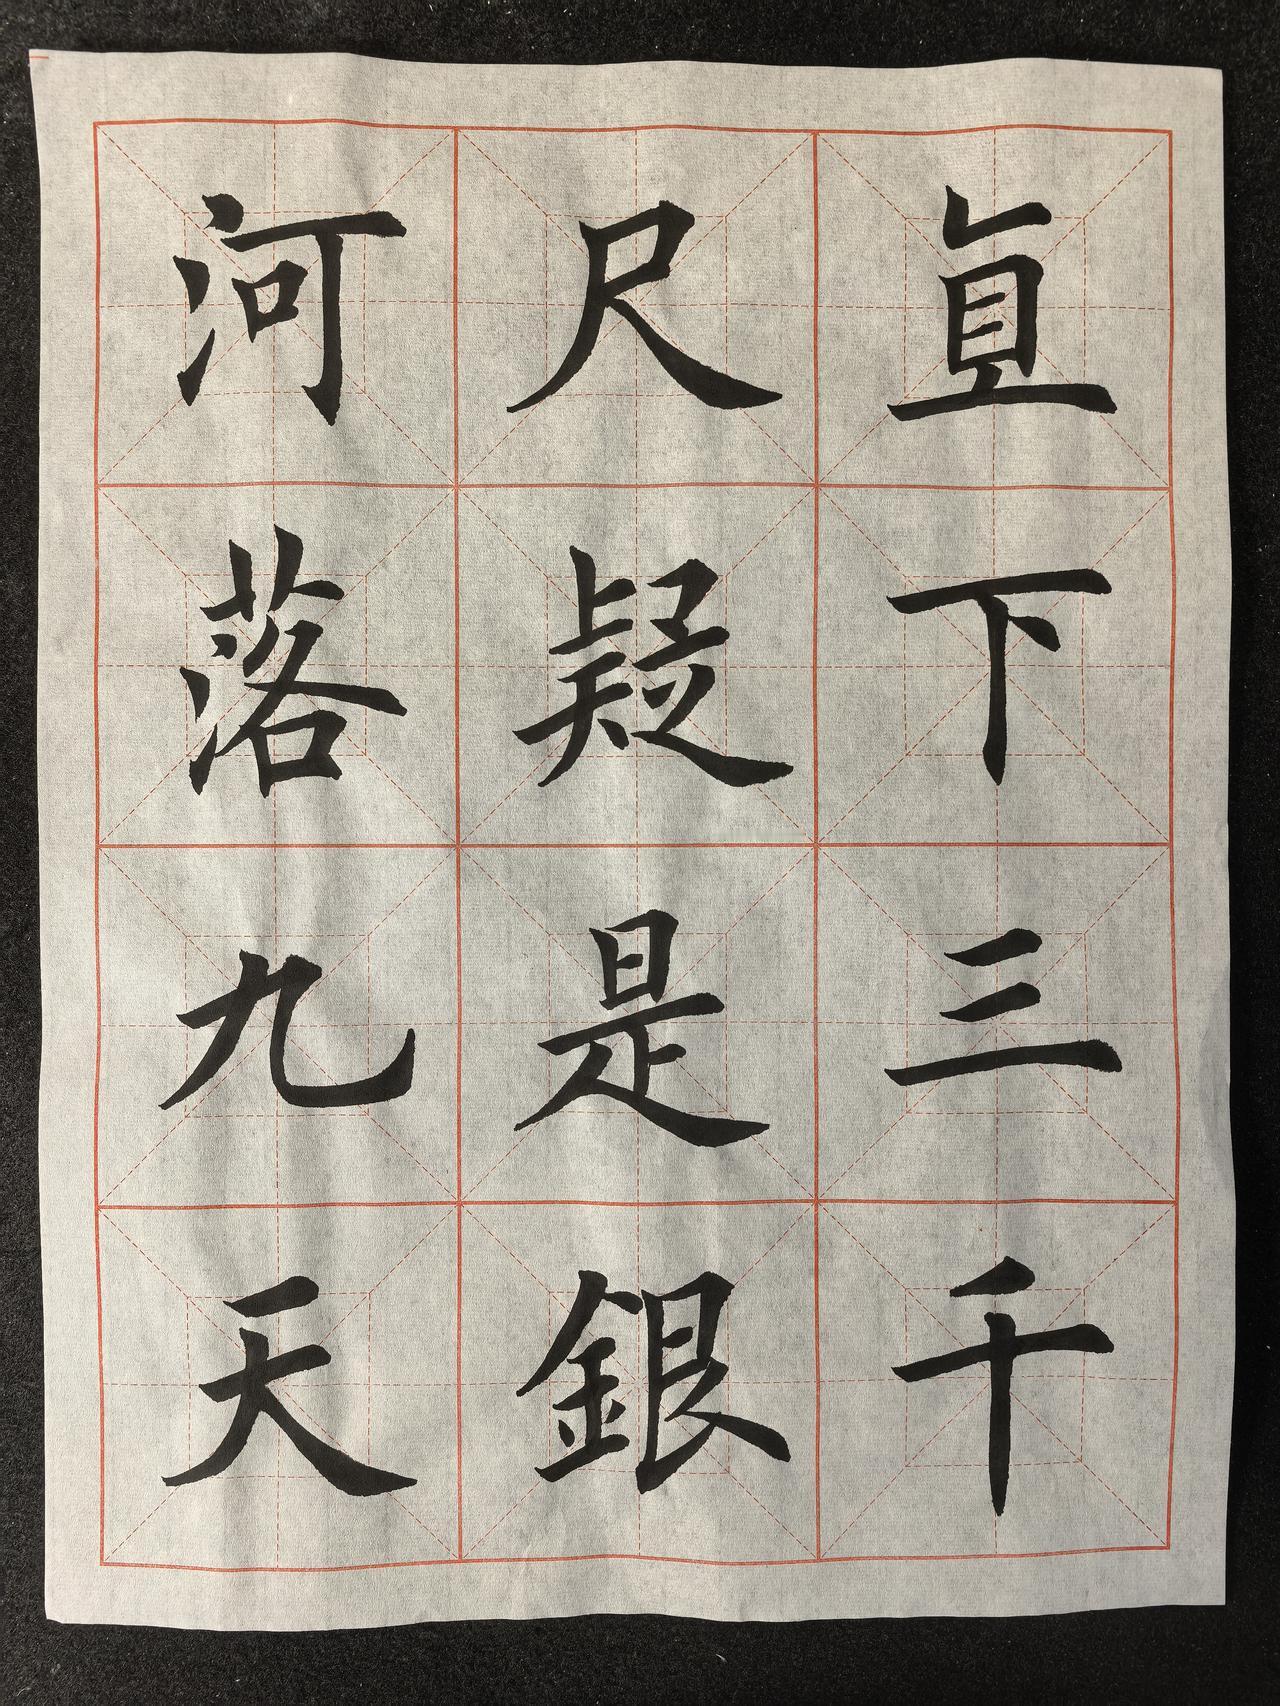 直下三千
尺疑是銀
河落九天